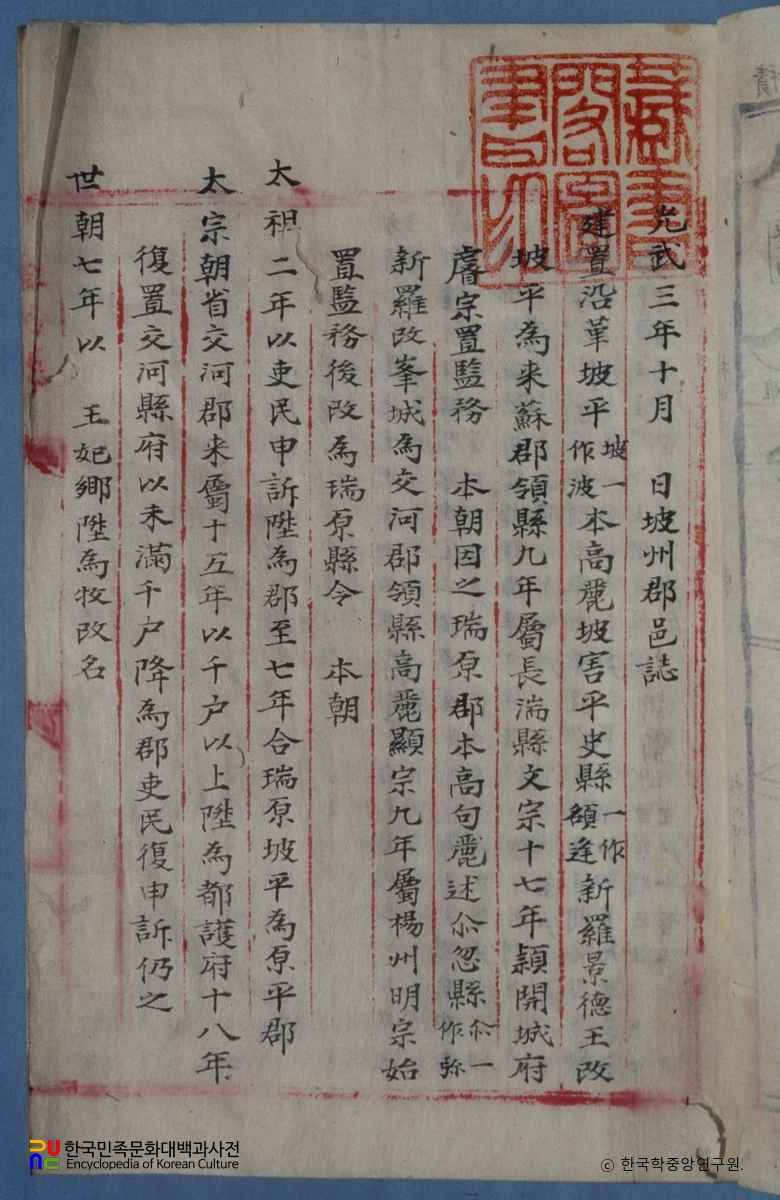 光武三年十月　日坡州郡邑誌
建置沿革坡平坡一作波本高麗坡害平史縣一作額逢新羅景德王改
坡平為来蘇郡領縣九年屬長湍縣文宗十七年穎開城府
睿宗置監務　本朝因之瑞原郡本高句麗述尒忽縣尒一作弥
新羅改峯城為交河郡領縣高麗顯宗九年屬楊州明宗始
置監務後改為瑞原縣令　本朝
太祖二年以吏民申訴陞為郡至七年合瑞原坡平為原平郡
太宗朝省交河郡来屬十五年以千户以上陞為都護府十八年
復置交河縣府以未滿千户降為郡吏民復申訴仍之
世朝七年以　王妃鄉陞為牧改名
藏書閣圖書印
한국민족문화대백과사전
Encyclopedia of Korean Culture
© 한국학중앙연구원.